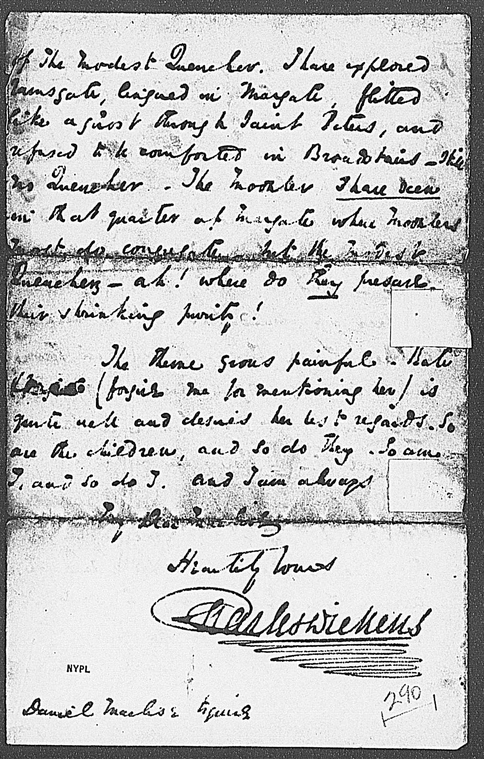 of The Modest Quencher. I have explored
Ramsgate, lingered in Margate, flitted
like a ghost through Saint Peters, and
refused to be comforted in Broadstairs – Still
no Quencher. The Moohler I have seen
in that quarter of Margate where Moohlers
most do congregate, but the Modest
Quenchers – ah! where do they preserve
their shrinking purity!
The theme grows painful. Kate
(forgive me for mentioning her) is
quite well and desires her best regards. So
are the children, and so do they. So am
I, and so do I. And I am always
My Dear Maclise
Heartily Yours
Charles Dickens
NYPL
290
Daniel Maclise Esquire